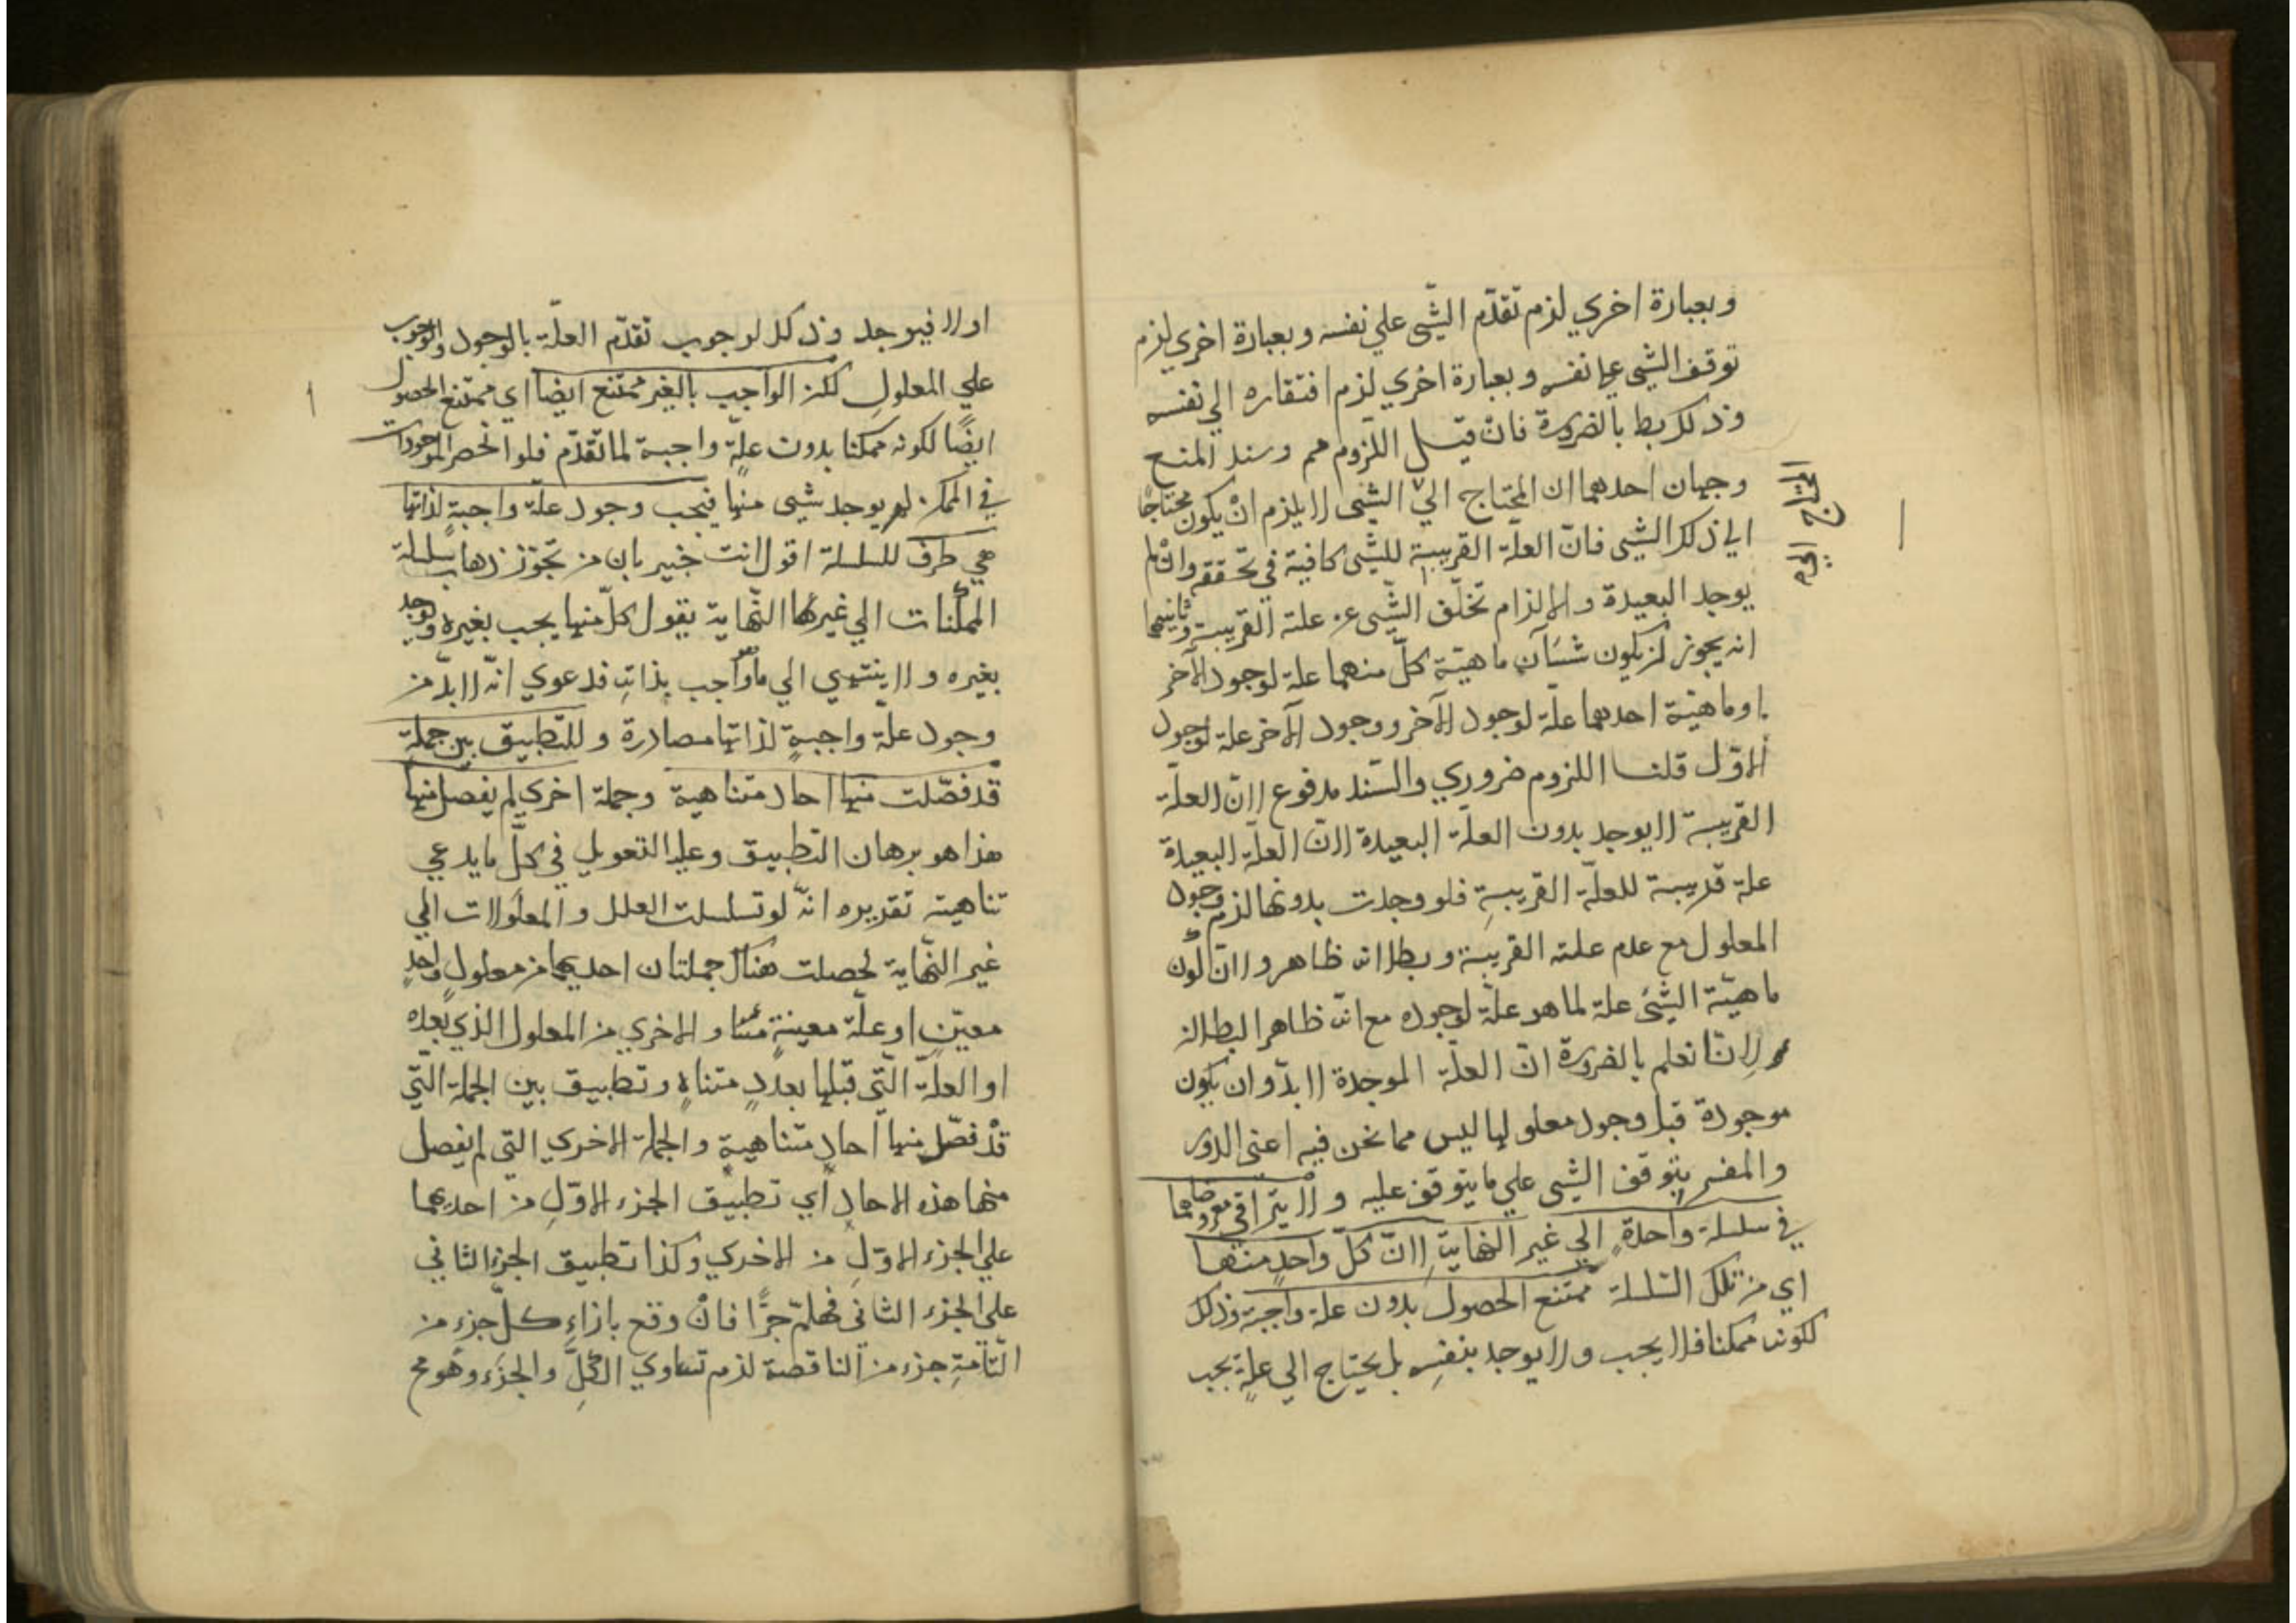 وبعبارة اخري لزم تقدّم الشّي علي نفسه وبعبارة اخري لزم
توقف الشّي علي نفسه وبعبارة اخري لزم افتقاره الي نفسه
وذلك بط بالضرورة فان قيل اللّزوم مم وسند المنع
وجهان احدهما ان المحتاج الي الشّي لا يلزم انْ يكون محتاجًا
الي ذلك الشّي فانّ العلّة القريبة للشّي كافية في تحققه وانْ لم
يوجد البعيدة والا لزام تخلّف الشّي عن علته القريبة وثانيهما
انه يجوز ان يكون شيئآن ماهيّة كلّ منهما علة لوجود الآخر
او ماهيّة احدهما علّة لوجود الآخر ووجود الآخر علة لوجود
الاوّل قلنا اللزوم ضروري والسّند مدفوع لانّ العلّة
القريبة لا يوجد بدون العلّة البعيدة لانّ العلّة البعيدة
علة قريبة للعلّة القريبةِ فلو وجدت بدونها لزم وجود
المعلول مع عدم علته القريبة وبطلانه ظاهر ولانّ كون
ماهيّة الشّئ علة لما هو علّة لوجوده مع انّه ظاهر البطلان
لانّا نعلم بالضرورة انّ العلّة الموجدة لا بدّ وان يكون
موجودة قبل وجود معلولها ليس مما نحن فيه اعنى الدور
والمفسر بتوقف الشّي علي ما يتوقف عليه ولا يتراقي معروضاهما
في سلسلة واحدةٍ الي غير النّهايةِ لانّ كلّ واحدٍ منهما
اي من تلك السّلسلة ممتنع الحصول بدون علة واجبة وذلك
لكونه ممكنا فلا يجب ولا يوجد بنفسِه بل يحتاج الي علةٍ يجب
اولا فيوجد وذلك لوجوب تقدّم العلّة بالوجود والوجوب
علي المعلولِ لكن الواجب بالغير ممتنع ايضًا اي ممتنع الحصول
ايضًا لكونه ممكنا بدون علّةٍ واجبة لما تقدّم فلو انحصر الموجودات
في الممكن لم يوجد شيى منها فيجب وجود علّة واجبةٍ لذاتها
هي طرف للسلسلة اقول انت خبير بان من تجوّز ذهاب سلسلة
الممكنات الي غير النّهاية يقول كلّ منها يجب بغيره ويوجد
بغيره ولا ينتهي الي ما وجب بذاتهِ فدعوي انّه لا بدّ من
وجود علّة واجبةٍ لذاتها مصادرة وللتّطبيق بين جملةٍ
قد فصّلت منها احاد متناهية وجملة اخري لم يفصل منها
هذا هو برهان التطبيق وعليه التعويل في كلّ ما يدعي
تناهيته تقريره انّه لو تسلسلت العلل والمعلولات الي
غير النّهاية لحصلت هناك جملتان احديهما من معلولٍ واحدٍ
معيّنٍ او علّة معينةٍ والاخري من المعلول الذي بعده
او العلّة الّتي قبلها بعددٍ متناهٍ وتطبيق بين الجملة الّتي
قدْ فصّل منها احادٍ متناهيةٍ والجملة الاخري التي لم يفصل
منها هذه الاحادِ أي تطبيق الجزء الاوّلِ من احديهما
علي الجزء الاوّلِ من الاخري وكذا تطبيق الجزء الثاني
علي الجزء الثاني فهلمّ جرًّا فانْ وقع بازاء كلّ جزءٍ من
التّامّةِ جزء من الناقصة لزم تساوي الكلّ والجزء وهو مح